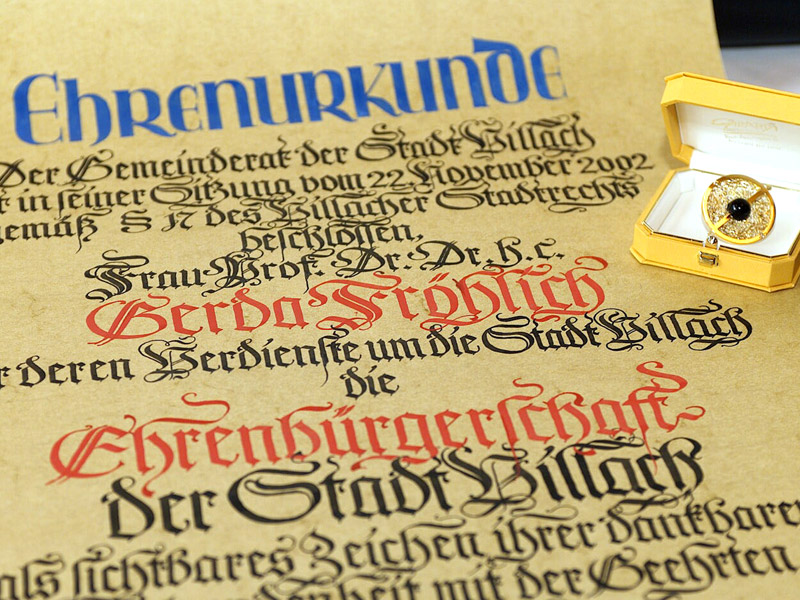 Ehrenurkunde
Der Gemeinderat der Stadt Villach
in seiner Sitzung vom 22. November 2002
gemäß § 17 des Villacher Stadtrechts
beschlossen,
Frau Prof. Dr. Dr. h. c.
Gerda Fröhlich
deren Verdienste um die Stadt Villach
die
Ehrenbürgerschaft
der Stadt Villach
als sichtbares Zeichen ihrer dankbaren
mit der Geehrten